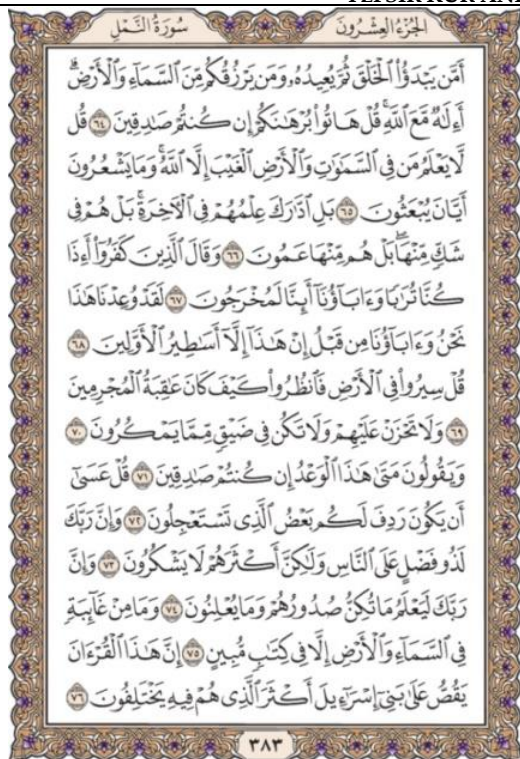 الجُزْءُ العِشْرُونَ سُورَةُ النَّمْلِ
أَمَّن يَبْدَؤُا۟ ٱلْخَلْقَ ثُمَّ يُعِيدُهُۥ وَمَن يَرْزُقُكُم مِّنَ ٱلسَّمَآءِ وَٱلْأَرْضِ ۗ
أَءِلَـٰهٌ مَّعَ ٱللَّهِ ۚ قُلْ هَاتُوا۟ بُرْهَـٰنَكُمْ إِن كُنتُمْ صَـٰدِقِينَ ٦٤ قُل
لَّا يَعْلَمُ مَن فِى ٱلسَّمَـٰوَٰتِ وَٱلْأَرْضِ ٱلْغَيْبَ إِلَّا ٱللَّهُ ۚ وَمَا يَشْعُرُونَ
أَيَّانَ يُبْعَثُونَ ٦٥ بَلِ ٱدَّٰرَكَ عِلْمُهُمْ فِى ٱلْـَٔاخِرَةِ ۚ بَلْ هُمْ فِى
شَكٍّ مِّنْهَا ۖ بَلْ هُم مِّنْهَا عَمُونَ ٦٦ وَقَالَ ٱلَّذِينَ كَفَرُوٓا۟ أَءِذَا
كُنَّا تُرَٰبًا وَءَابَآؤُنَآ أَئِنَّا لَمُخْرَجُونَ ٦٧ لَقَدْ وُعِدْنَا هَـٰذَا
نَحْنُ وَءَابَآؤُنَا مِن قَبْلُ إِنْ هَـٰذَآ إِلَّآ أَسَـٰطِيرُ ٱلْأَوَّلِينَ ٦٨
قُلْ سِيرُوا۟ فِى ٱلْأَرْضِ فَٱنظُرُوا۟ كَيْفَ كَانَ عَـٰقِبَةُ ٱلْمُجْرِمِينَ
٦٩ وَلَا تَحْزَنْ عَلَيْهِمْ وَلَا تَكُن فِى ضَيْقٍ مِّمَّا يَمْكُرُونَ ٧٠
وَيَقُولُونَ مَتَىٰ هَـٰذَا ٱلْوَعْدُ إِن كُنتُمْ صَـٰدِقِينَ ٧١ قُلْ عَسَىٰٓ
أَن يَكُونَ رَدِفَ لَكُم بَعْضُ ٱلَّذِى تَسْتَعْجِلُونَ ٧٢ وَإِنَّ رَبَّكَ
لَذُو فَضْلٍ عَلَى ٱلنَّاسِ وَلَـٰكِنَّ أَكْثَرَهُمْ لَا يَشْكُرُونَ ٧٣ وَإِنَّ
رَبَّكَ لَيَعْلَمُ مَا تُكِنُّ صُدُورُهُمْ وَمَا يُعْلِنُونَ ٧٤ وَمَا مِنْ غَآئِبَةٍ
فِى ٱلسَّمَآءِ وَٱلْأَرْضِ إِلَّا فِى كِتَـٰبٍ مُّبِينٍ ٧٥ إِنَّ هَـٰذَا ٱلْقُرْءَانَ
يَقُصُّ عَلَىٰ بَنِىٓ إِسْرَٰٓءِيلَ أَكْثَرَ ٱلَّذِى هُمْ فِيهِ يَخْتَلِفُونَ ٧٦
٣٨٣